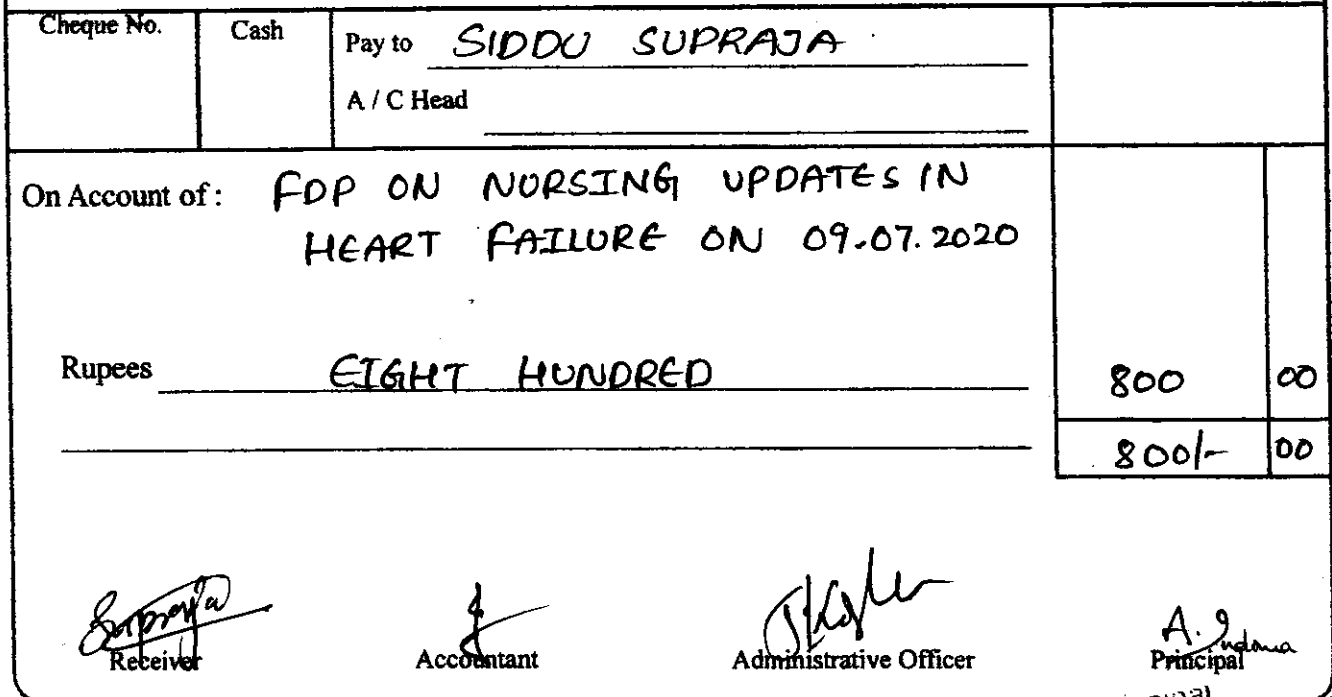 Cheque No. Cash Pay to SIDDU SUPRAJA
A / C Head
On Account of : FDP ON NURSING UPDATES IN
HEART FAILURE ON 09.07.2020
Rupees EIGHT HUNDRED 800 00
800/- 00
Supraja
A. 
Receiver Accountant Administrative Officer Principal